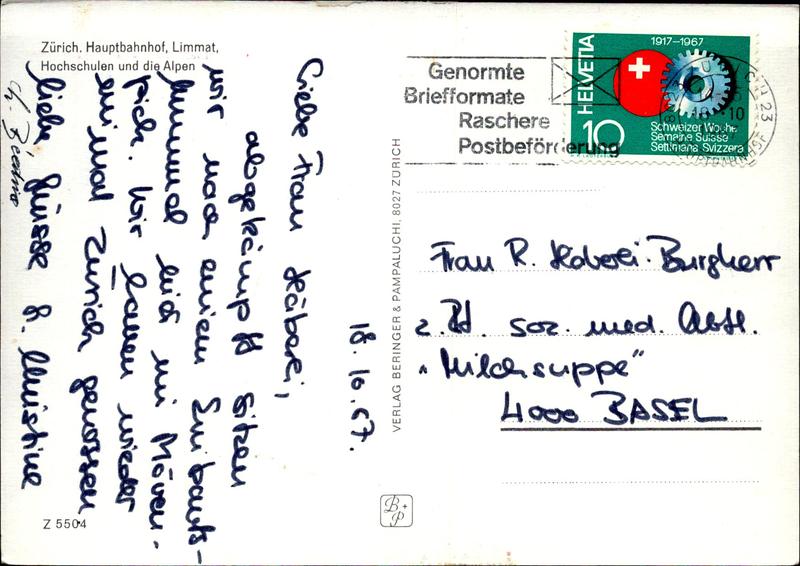 Zürich. Hauptbahnhof, Limmat,
Hochschulen und die Alpen
18.10.67.
Liebe Frau Häberli,
abgekämpft sitzen
wir nach einem Einkaufs-
bummel hier im Möven-
pick. Wir haben wieder
einmal Zürich genossen
liebe Grüsse Ch. Christine
Z 5504
VERLAG BERINGER & PAMPALUCHI, 8027 ZÜRICH
B+P
Genormte
Briefformate
Raschere
Postbeförderung
HELVETIA
1917–1967
10
Schweizer Woche
Semaine Suisse
Settimana Svizzera
ZÜRICH 23
Frau R. Häberli-Burgherr
z. Zt. soz. med. Abtl.
"Milchsuppe"
4000 BASEL